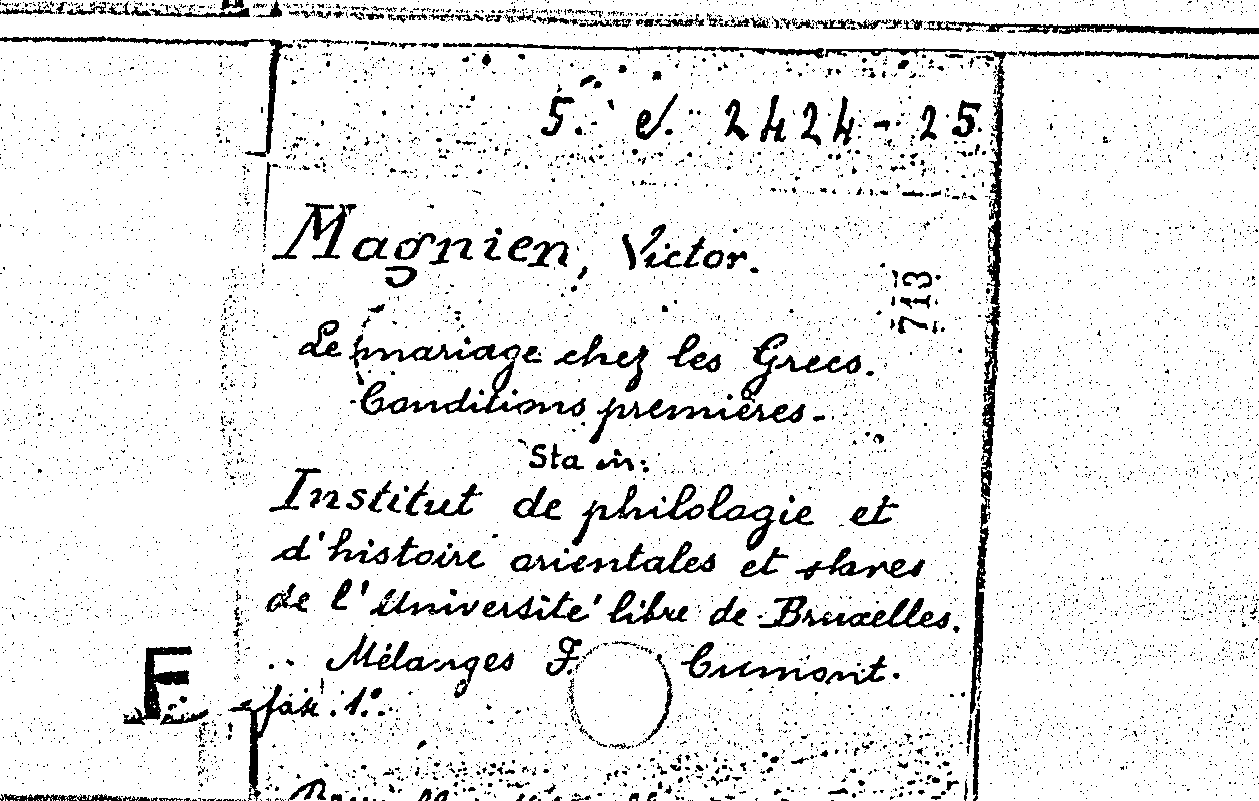 5. e. 2424-25
Magnien, Victor.
713
Le mariage chez les Grecs.
Conditions premières.
Sta in:
Institut de philologie et
d'histoire orientales et slaves
de l'Université libre de Bruxelles.
.. Mélanges F. Cumont.
F
fax. 1º.